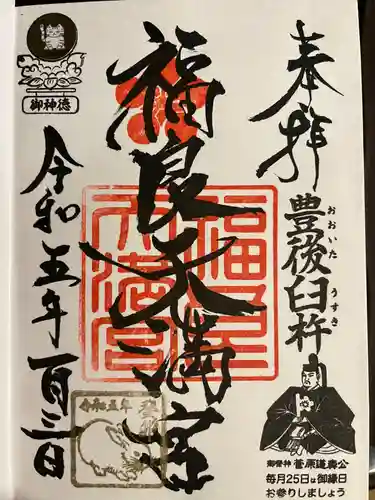 奉拝
おおいた うすき
豊後臼杵
御祭神 菅原道真公
毎月25日は御縁日
お参りしましょう
福良天満宮
福良天満宮
御神徳
令和五年一月三日
令和五年